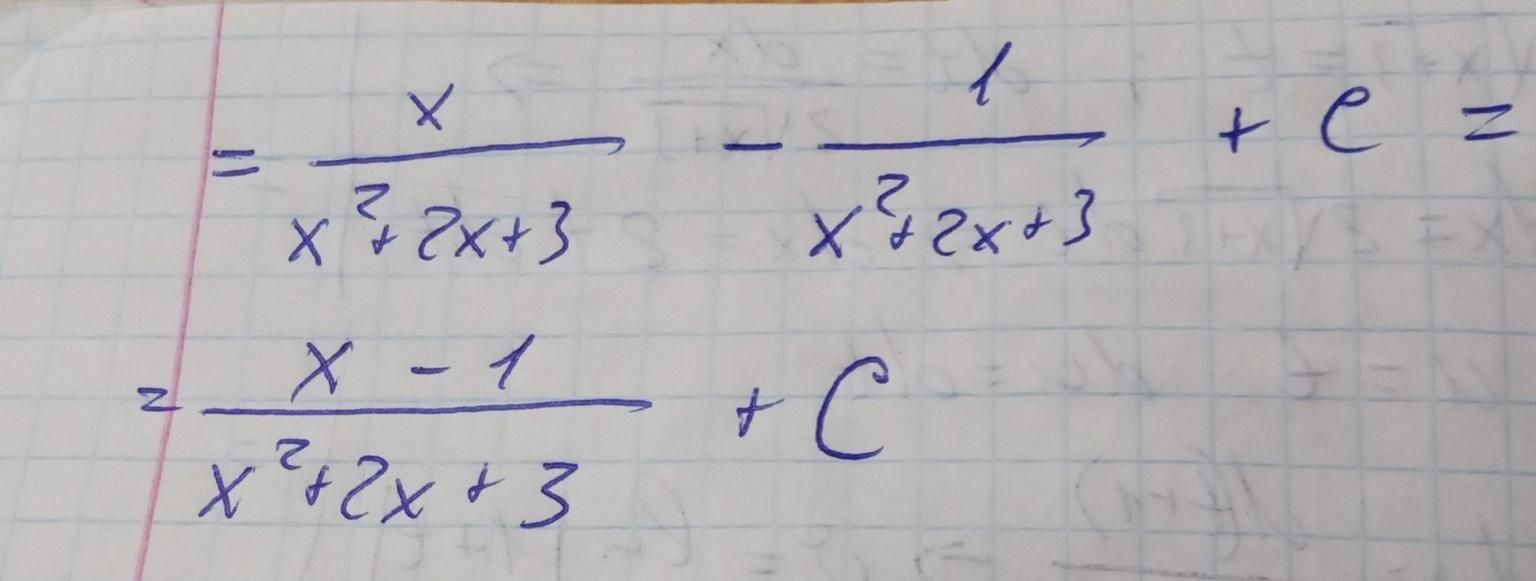 = x/(x²+2x+3) - 1/(x²+2x+3) + C =
= (x - 1)/(x²+2x+3) + C